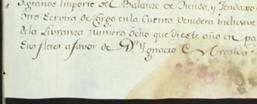 Sgranos Importe del Balanze de Tienda, y Tendaxo
Otro Servira de Cargo en la Cuenta Venidera Inclusive
de la Livranza numero ocho que dieste año en
sus fletes a favor de Dn Ygnacio